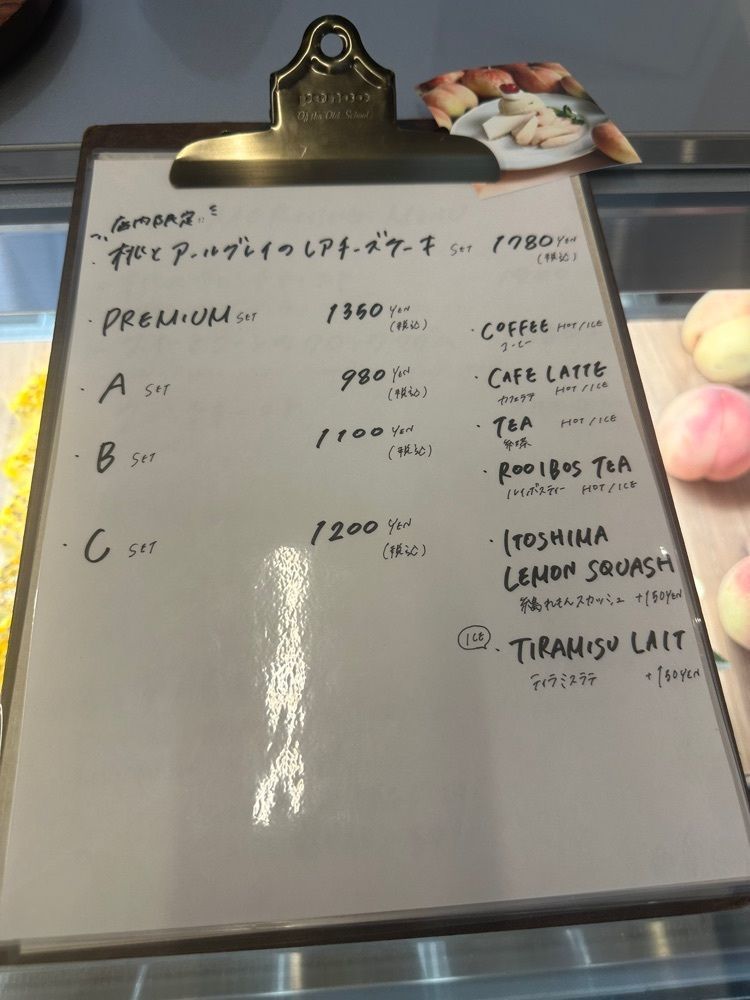 PENCO
Of the Old School
店内限定
・桃とアールグレイのレアチーズケーキ SET 1780 YEN
(税込)
・PREMIUM SET 1350 YEN
(税込)
・A SET 980 YEN
(税込)
・B SET 1100 YEN
(税込)
・C SET 1200 YEN
(税込)
・COFFEE HOT/ICE
コーヒー
・CAFE LATTE
カフェラテ HOT/ICE
・TEA HOT/ICE
紅茶
・ROOIBOS TEA
ルイボスティー HOT/ICE
・ITOSHIMA
LEMON SQUASH
糸島れもんスカッシュ +150YEN
ICE ・TIRAMISU LAIT
ティラミスラテ +150YEN